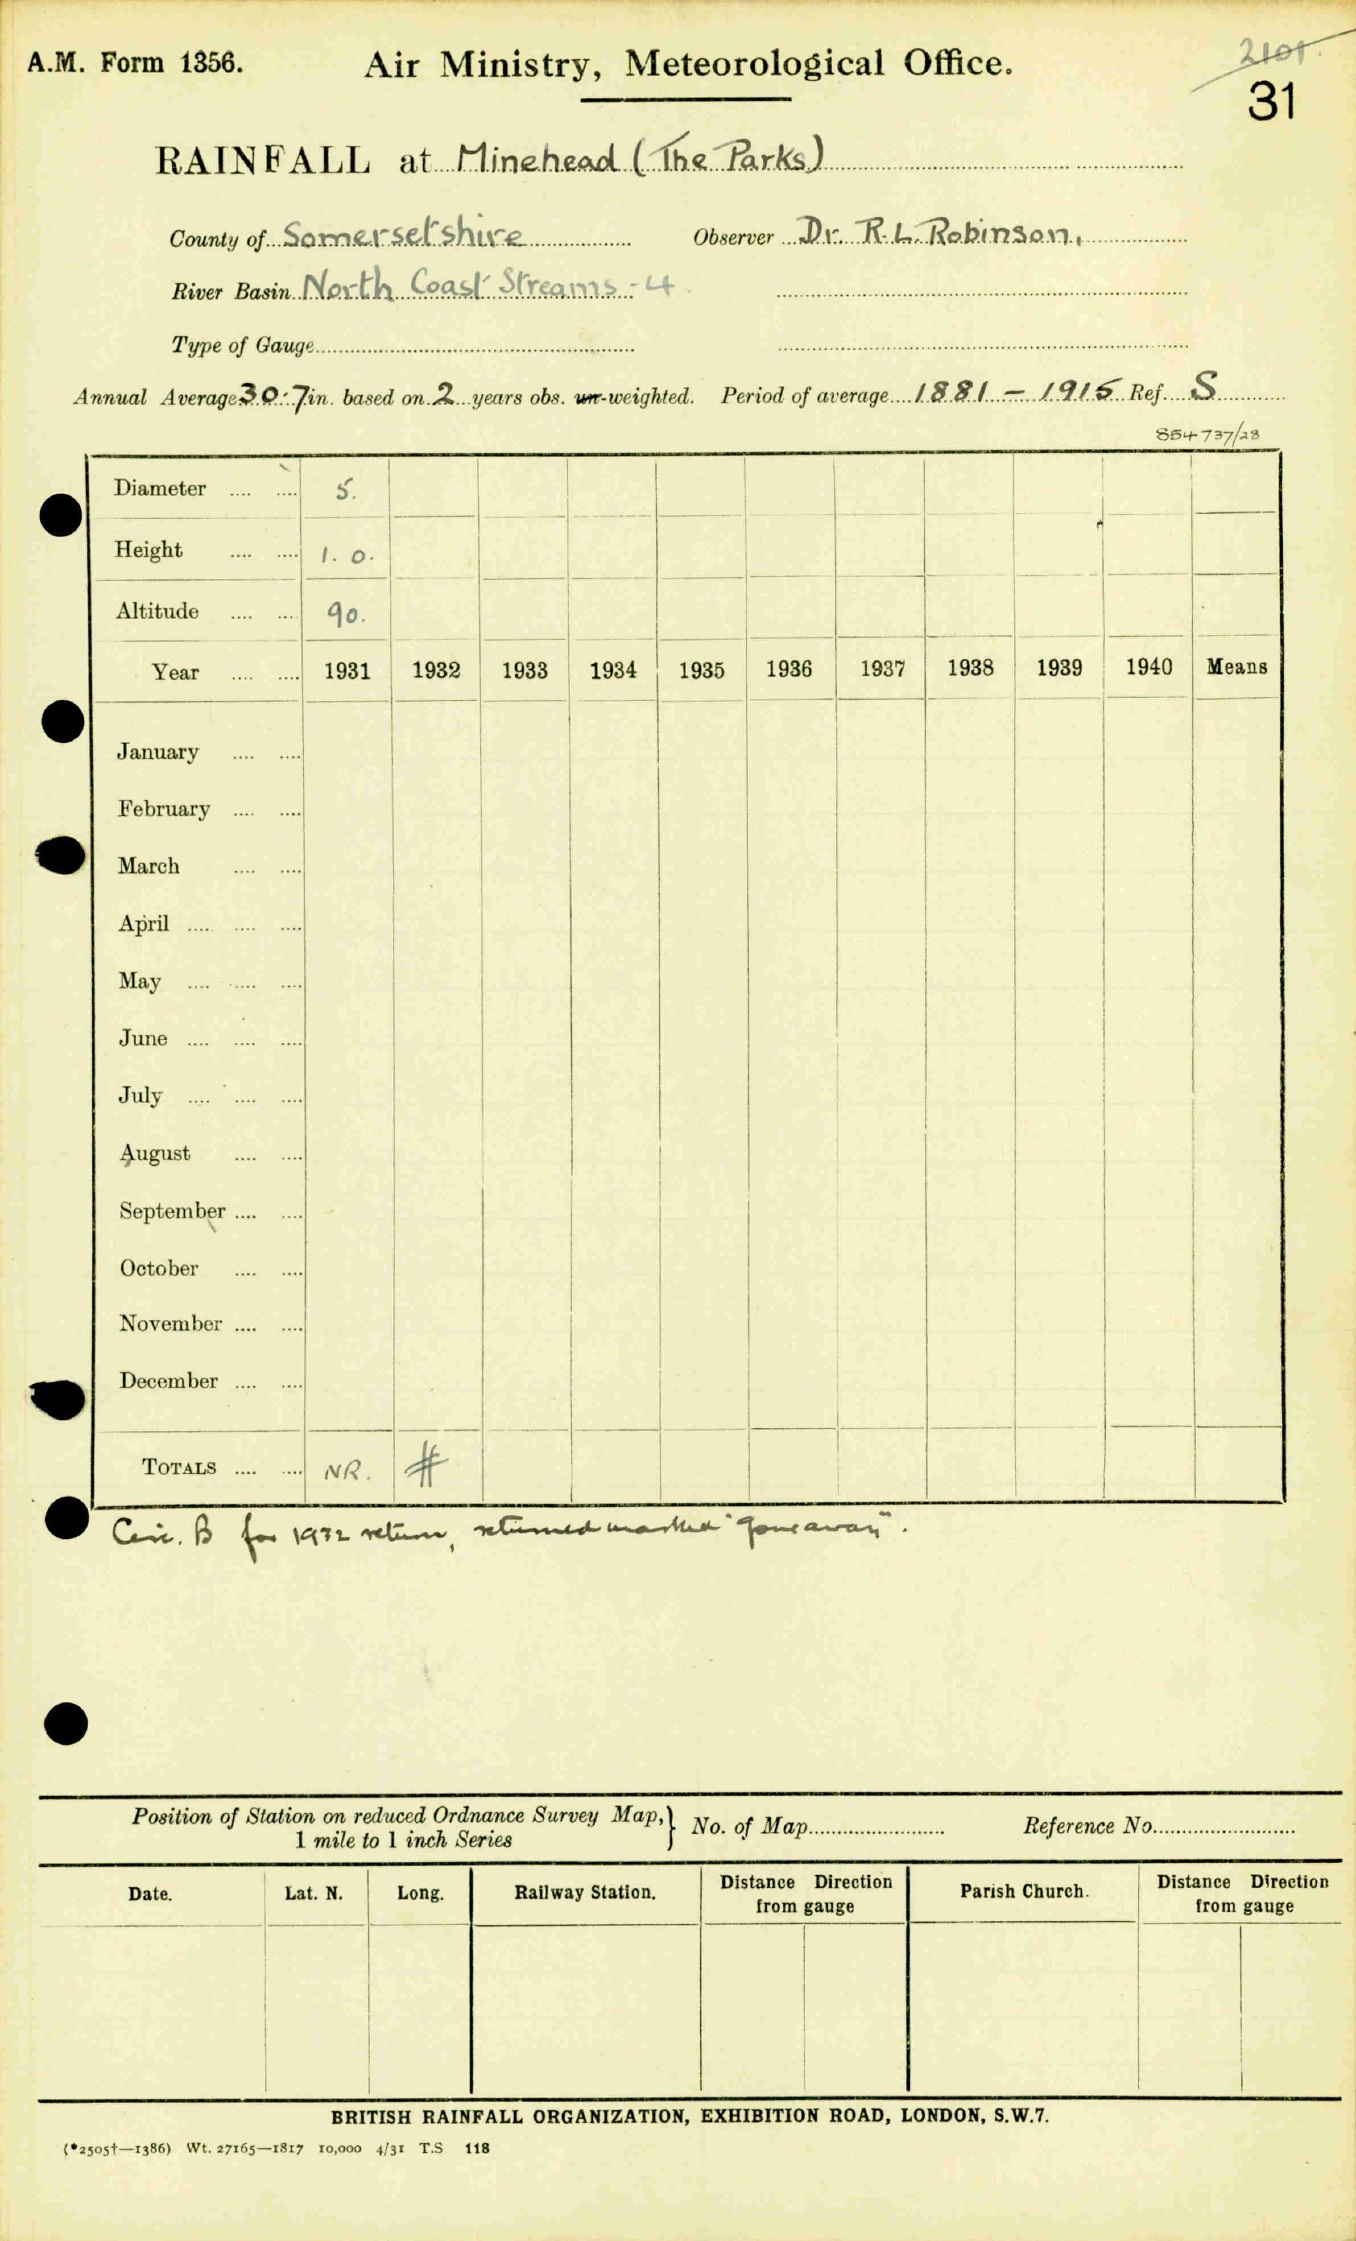 A.M. Form 1356.
Air Ministry, Meteorological Office.
2101.
31
RAINFALL at Minehead (The Parks)
County of Somersetshire
Observer Dr. R. L. Robinson,
River Basin North Coast Streams - 4.
Type of Gauge
Annual Average 30.7 in. based on 2 years obs. un-weighted. Period of average 1881 - 1915 Ref. S
854737/28
Diameter .... .... 5.
Height .... .... 1. 0.
Altitude .... .... 90.
Year .... .... 1931 1932 1933 1934 1935 1936 1937 1938 1939 1940 Means
January .... ....
February .... ....
March .... ....
April .... .... ....
May .... .... ....
June .... .... ....
July .... .... ....
August .... ....
September .... ....
October .... ....
November .... ....
December .... ....
TOTALS .... .... NR. #
Circ. B for 1932 return, returned marked "gone away".
Position of Station on reduced Ordnance Survey Map,}
1 mile to 1 inch Series
No. of Map
Reference No.
Date. Lat. N. Long. Railway Station. Distance Direction from gauge Parish Church. Distance Direction from gauge
BRITISH RAINFALL ORGANIZATION, EXHIBITION ROAD, LONDON, S.W.7.
(*2505†—1386) Wt. 27165—1817 10,000 4/31 T.S 118